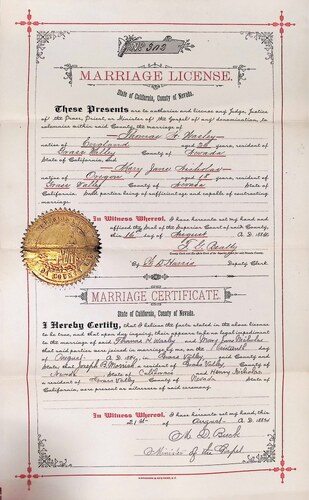 No 302
MARRIAGE LICENSE.
State of California, County of Nevada.
These Presents are to authorize and license any Judge, Justice
of the Peace, Priest, or Minister of the Gospel of any denomination, to
solemnize within said County, the marriage of
Thomas H Warley
native of England aged 26 years, resident of
Grass Valley County of Nevada
State of California, and
Mary Jane Nicholas
native of Oregon aged 18 years, resident of
Grass Valley County of Nevada
State of California, said parties being of sufficient age and capable of contracting
marriage.
In Witness Whereof, I have hereunto set my hand and
affixed the Seal of the Superior Court of said County,
this 16 day of August A. D. 1884
County Clerk and Ex-officio Clerk of the Superior Court in and for Nevada County.
By Deputy Clerk
MARRIAGE CERTIFICATE.
State of California, County of Nevada.
I Hereby Certify, that I believe the facts stated in the above license
to be true, and that upon due inquiry, there appears to be no legal impediment
to the marriage of said Thomas H Warley and Mary Jane Nicholas
that said parties were joined in marriage by me, on the
August A. D. 1884, in Grass Valley said County and
State; that Joseph a resident of Grass Valley County of
Nevada State of California and Henry Nicholas
a resident of Grass Valley County of Nevada State of
California, were present as witnesses of said ceremony.
In Witness Whereof, I have hereunto set my hand, this
21st day of August A. D. 1884
M. D. Buck
Minister of the Gospel